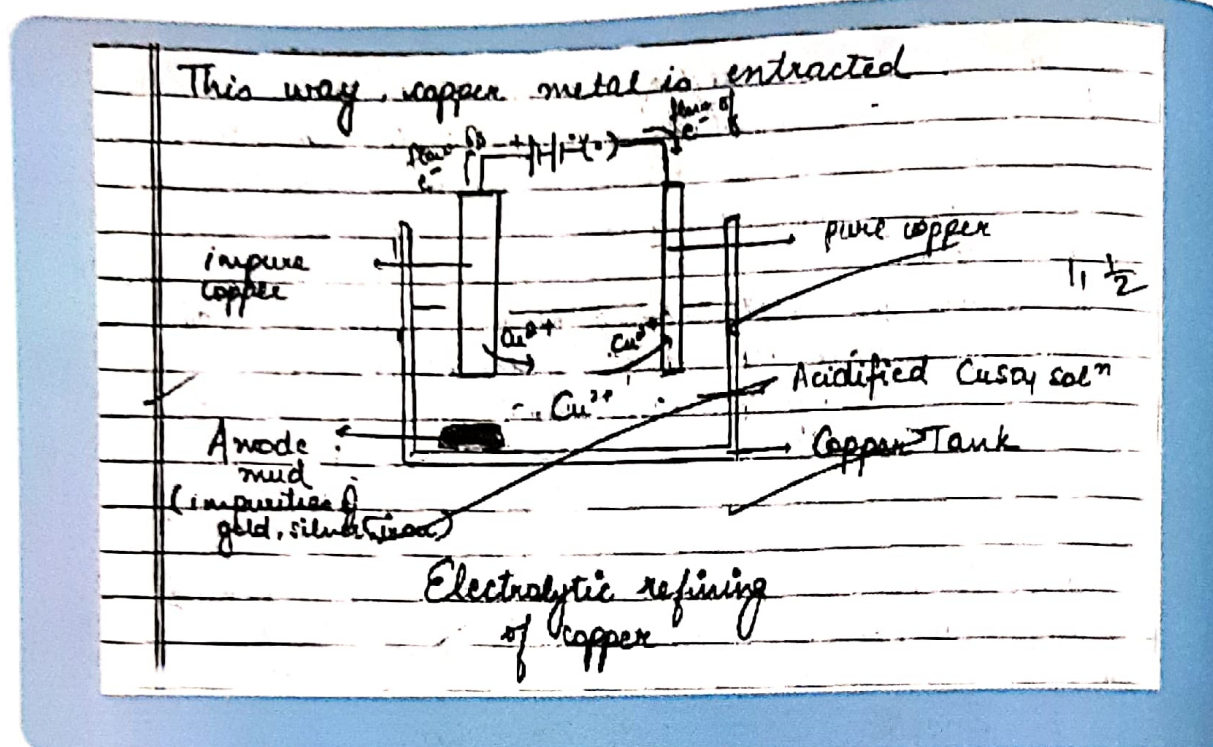 This way, copper metal is entracted
flow of
e⁻
+
(-)
flow of
e⁻
impure
copper
pure copper
1, 1/2
Cu²⁺
Cu²⁺
Cu²⁺
Acidified CuSO₄ solⁿ
Anode
mud
(impurities of
gold, silver, iron)
Copper Tank
Electrolytic refining
of copper